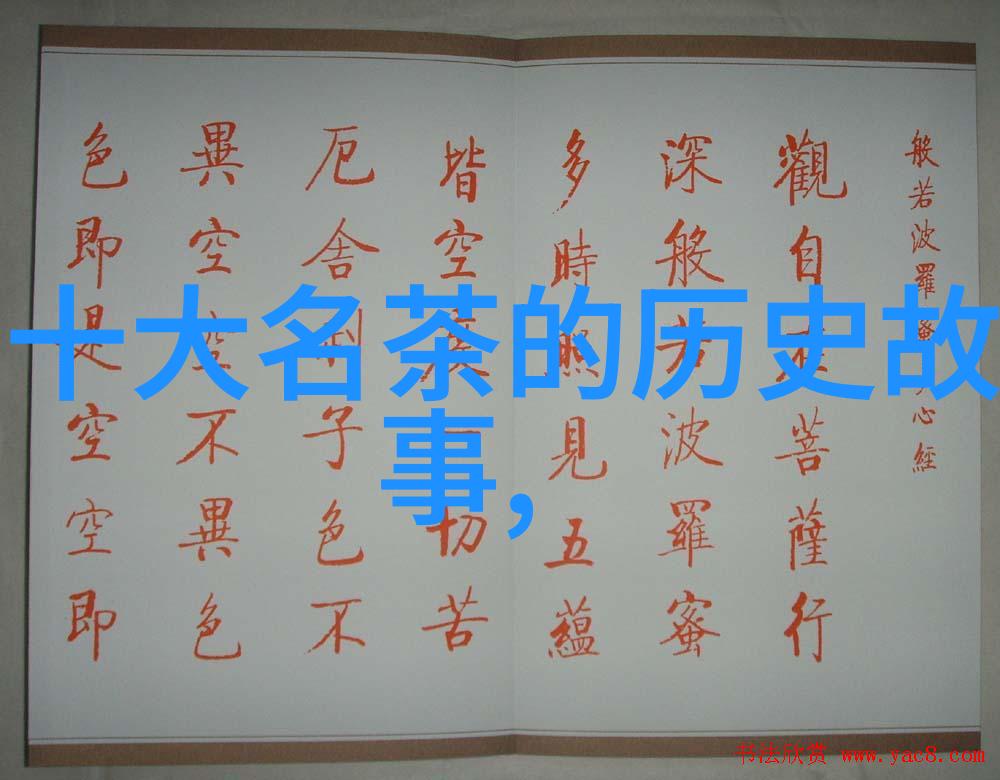 十大名茶的历史故
事,
般若波羅蜜多心經
觀自在菩薩行
深般若波羅蜜
多時照見五蘊
皆空度一切苦
厄舍利子色不
異空空不異色
色即是空空即
书法欣赏 www.yac8.com